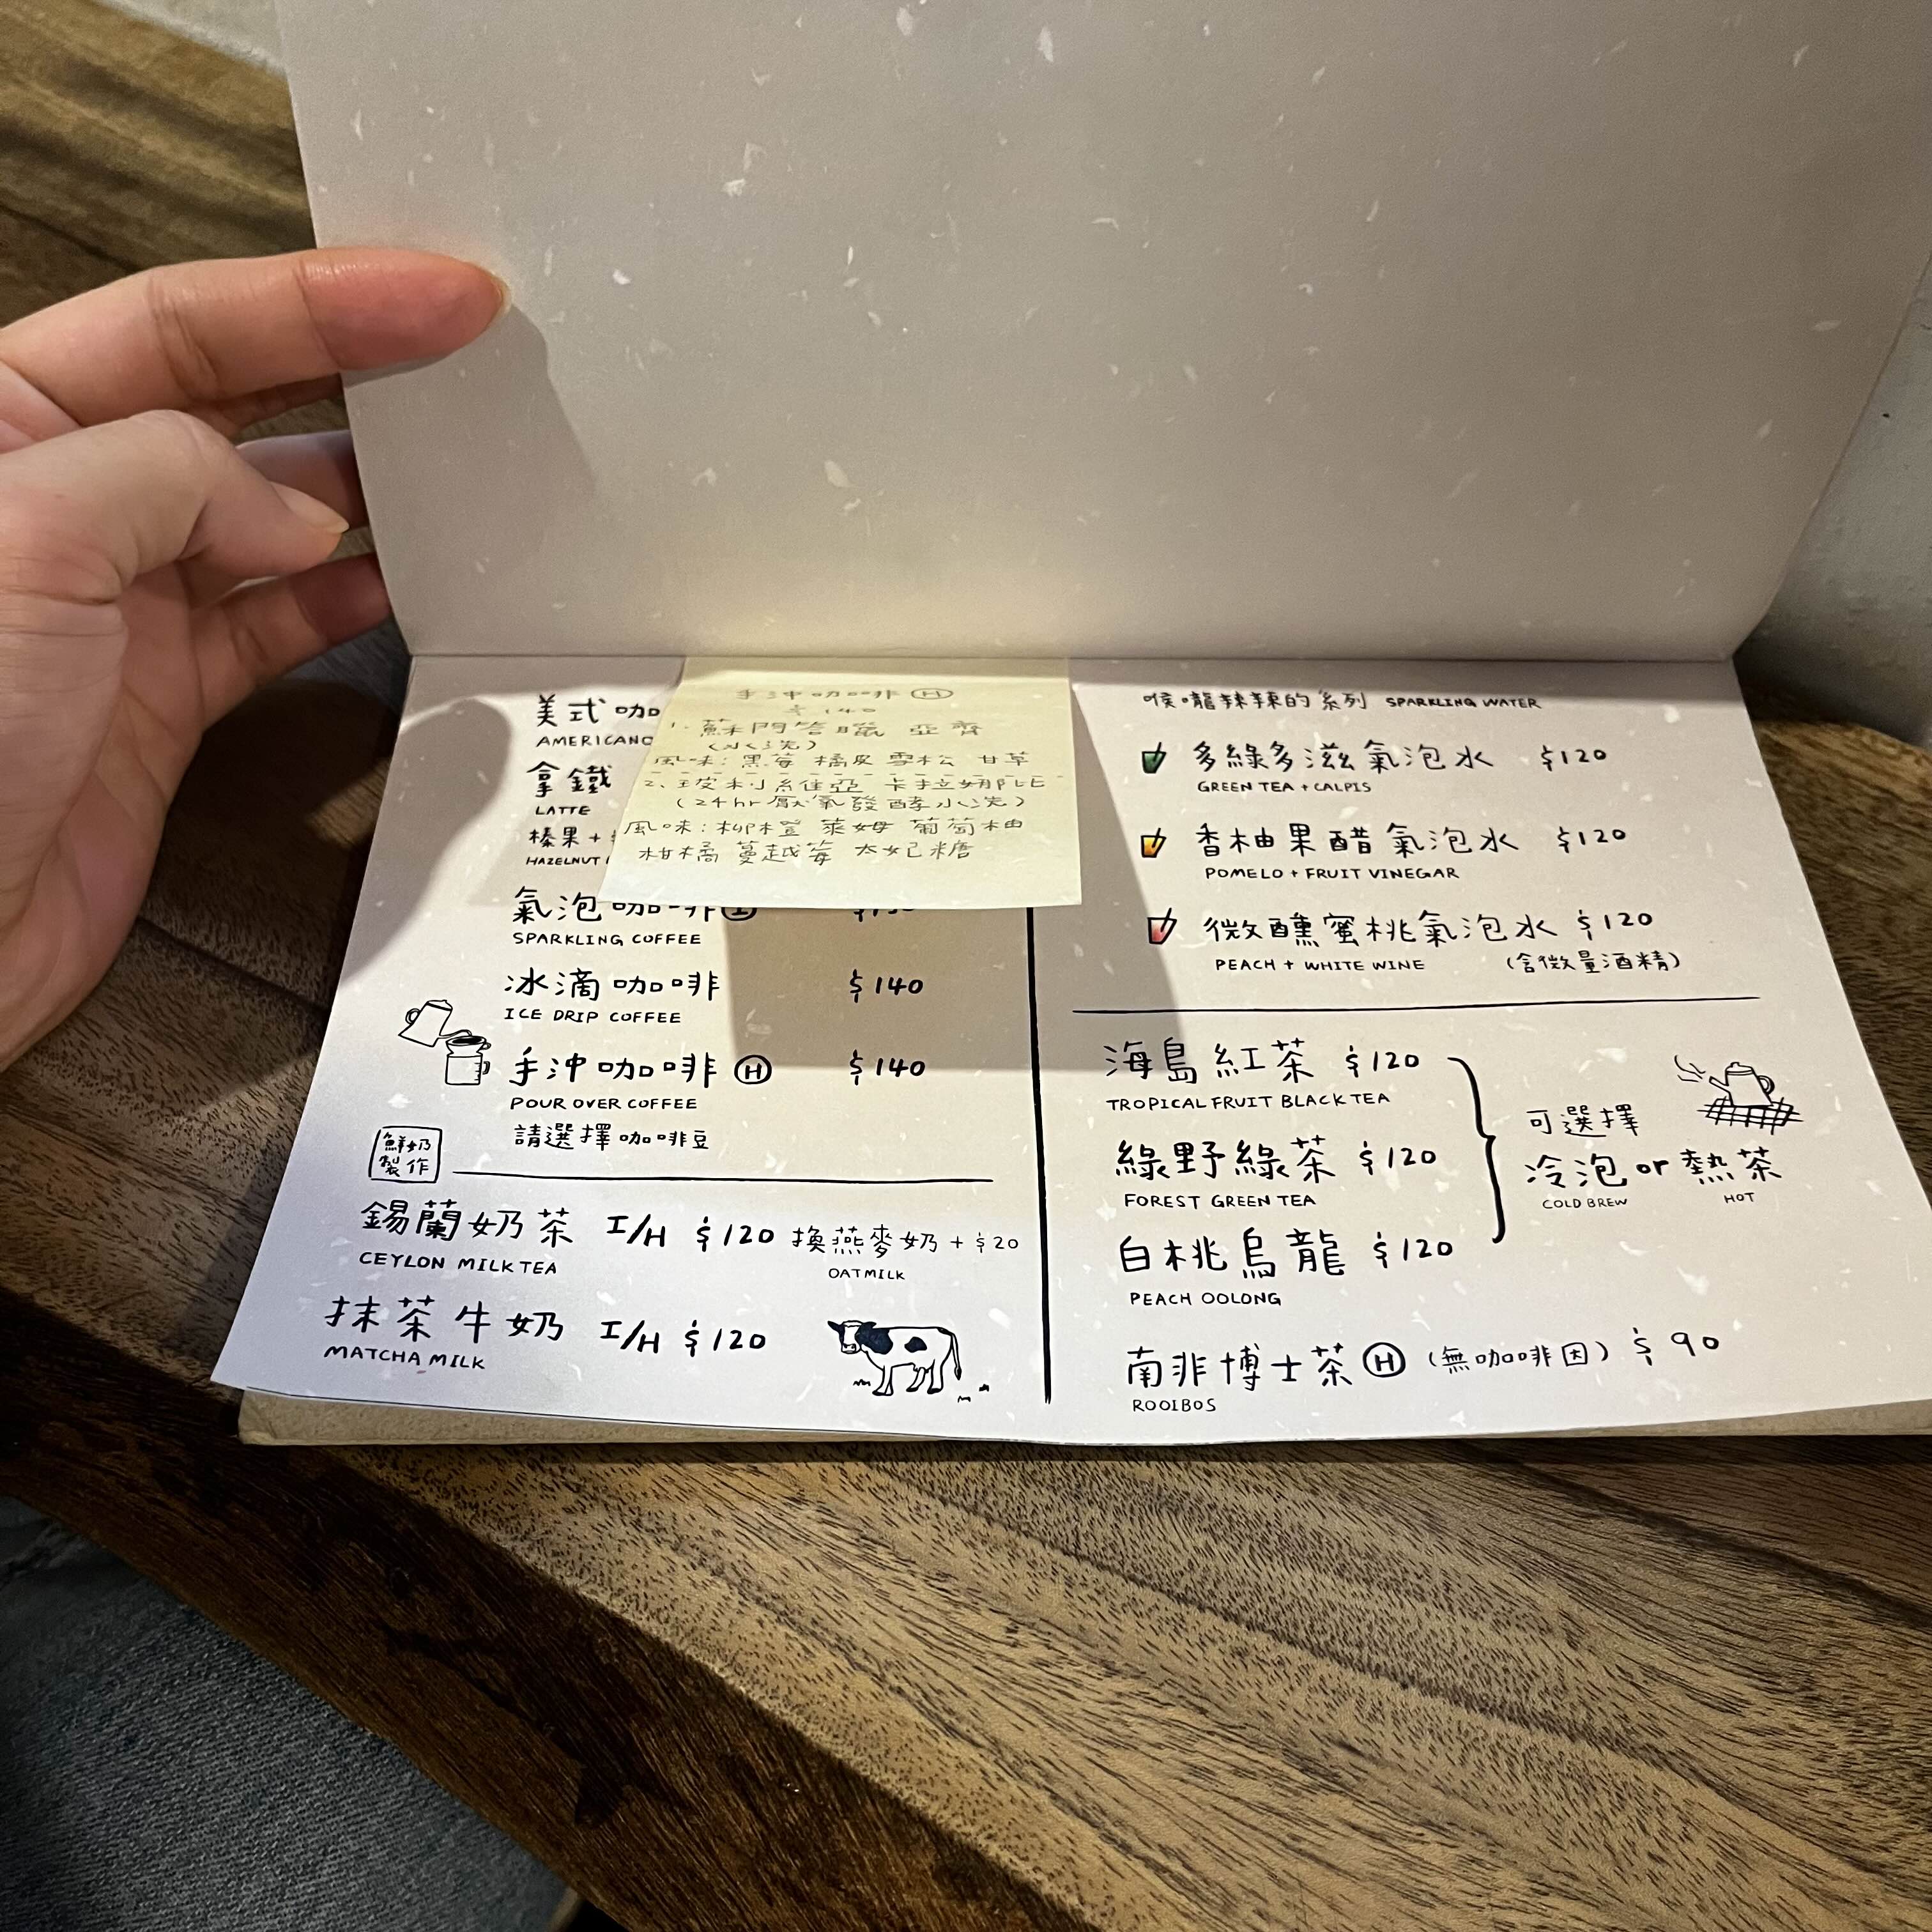 美式咖
AMERICANO
拿鐵
LATTE
榛果+
HAZELNUT
手沖咖啡 Ⓗ
$140
1. 蘇門答臘 亞齊
(水洗)
風味:黑莓 橘皮 雪松 甘草
2. 玻利維亞 卡拉娜比
(24hr厭氧發酵水洗)
風味:柳橙 萊姆 葡萄柚
柑橘 蔓越莓 太妃糖
氣泡咖啡Ⓘ
SPARKLING COFFEE
冰滴咖啡 $140
ICE DRIP COFFEE
手沖咖啡 Ⓗ $140
POUR OVER COFFEE
請選擇咖啡豆
鮮奶
製作
錫蘭奶茶 I/H $120 換燕麥奶+$20
CEYLON MILK TEA OATMILK
抹茶牛奶 I/H $120
MATCHA MILK
喉嚨辣辣的系列 SPARKLING WATER
多綠多滋氣泡水 $120
GREEN TEA + CALPIS
香柚果醋氣泡水 $120
POMELO + FRUIT VINEGAR
微醺蜜桃氣泡水 $120
PEACH + WHITE WINE (含微量酒精)
海島紅茶 $120
TROPICAL FRUIT BLACK TEA
綠野綠茶 $120
FOREST GREEN TEA
白桃烏龍 $120
PEACH OOLONG
可選擇
冷泡 or 熱茶
COLD BREW HOT
南非博士茶 Ⓗ (無咖啡因) $90
ROOIBOS